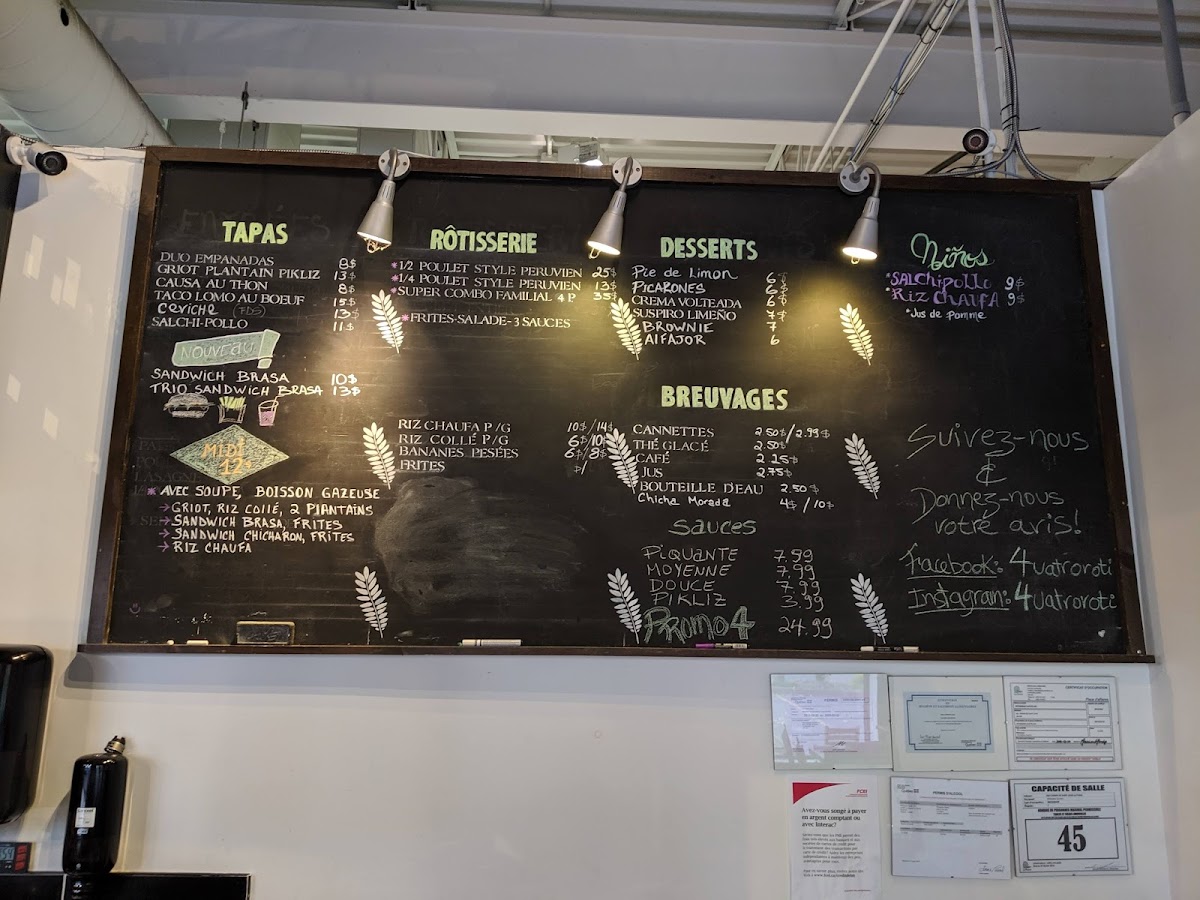 TAPAS
DUO EMPANADAS 8$
GRIOT PLANTAIN PIKLIZ 13$
CAUSA AU THON 8$
TACO LOMO AU BOEUF 15$
Ceviche (FDS) 13$
SALCHI-POLLO 11$
NOUVEAU!
SANDWICH BRASA 10$
TRIO SANDWICH BRASA 13$
MIDI
12$
* AVEC SOUPE, BOISSON GAZEUSE
→ GRIOT, RIZ COLLÉ, 2 PLANTAINS
→ SANDWICH BRASA, FRITES
→ SANDWICH CHICHARON, FRITES
→ RIZ CHAUFA
RÔTISSERIE
*1/2 POULET STYLE PERUVIEN 25$
*1/4 POULET STYLE PERUVIEN 13$
*SUPER COMBO FAMILIAL 4 P 35$
*FRITES-SALADE-3 SAUCES
RIZ CHAUFA P/G 10$/14$
RIZ COLLÉ P/G 6$/10$
BANANES PESÉES 6$/8$
FRITES
DESSERTS
Pie de Limon 6$
PICARONES 6$
CREMA VOLTEADA 6$
SUSPIRO LIMEÑO 7$
BROWNIE 7
AlFAJOR 6
BREUVAGES
CANNETTES 2.50$/2.99$
THÉ GLACÉ 2.50$
CAFÉ 2.25$
JUS 2.75$
BOUTEILLE D'EAU 2.50$
Chicha Morada 4$/10$
SAUCES
PIQUANTE 7.99
MOYENNE 7.99
DOUCE 7.99
PIKLIZ 3.99
PROMO 4 24.99
Niños
*SALChipollo 9$
RIZ CHAUFA 9$
*Jus de pomme
Suivez-nous
&
Donnez-nous
votre avis!
Facebook: 4uatroroti
Instagram: 4uatroroti
FCEI
Avez-vous songé à payer
en argent comptant ou
avec Interac?
CAPACITÉ DE SALLE
45